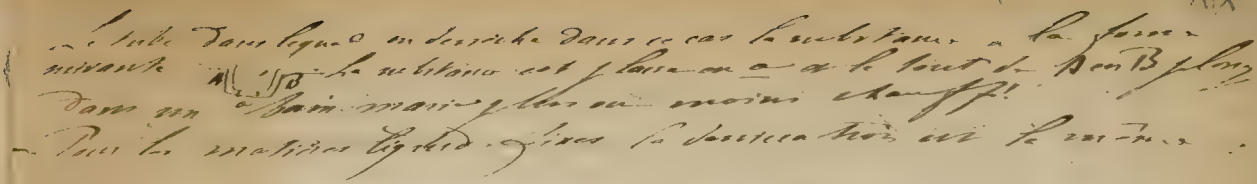 Le tube dans lequel on dessèche dans ce cas la substance a la forme
suivante A B La substance est placée en a et le tout de A en B plongé
dans un bain-marie plus ou moins chauffé.
Pour les matières liquides fixes la dessiccation est la même